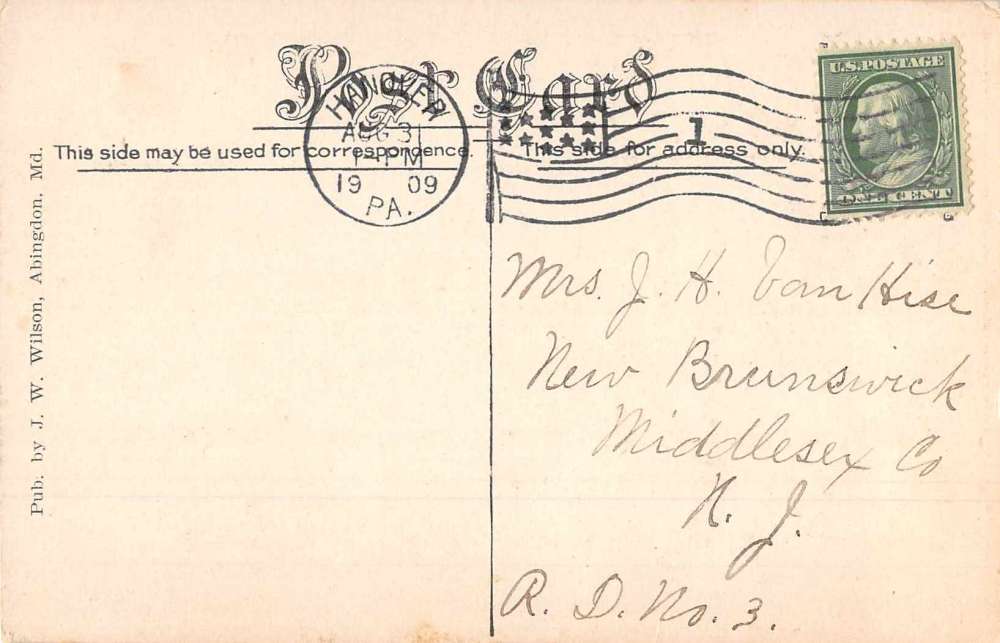 Post Card
This side may be used for correspondence.
This side for address only.
HANOVER
AUG 31
-PM
19 09
PA.
1
U.S. POSTAGE
ONE CENT
Pub. by J. W. Wilson, Abingdon, Md.
Mrs. J. H. Van Hise
New Brunswick
Middlesex Co
N. J.
R. D. No. 3.